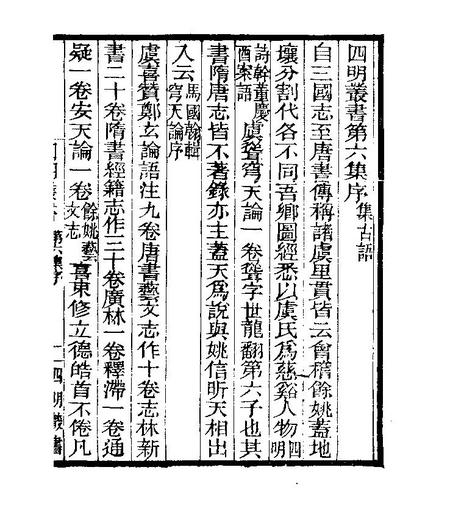 四明叢書第六集序集古語
自三國志至唐書傳稱諸虞里貫皆云會稽餘姚蓋地
壤分割代各不同吾鄉圖經悉以虞氏為慈谿人物四明
詩幹董慶酉案語虞聳穹天論一卷聳字世龍翻第六子也其
書隋唐志皆不著錄亦主蓋天為說與姚信昕天相出
入云馬國翰輯穹天論序
虞喜贊鄭玄論語注九卷唐書藝文志作十卷志林新
書二十卷隋書經籍志作三十卷廣林一卷釋滯一卷通
疑一卷安天論一卷餘姚藝文志喜束修立德皓首不倦凡
第六集序
四明叢書